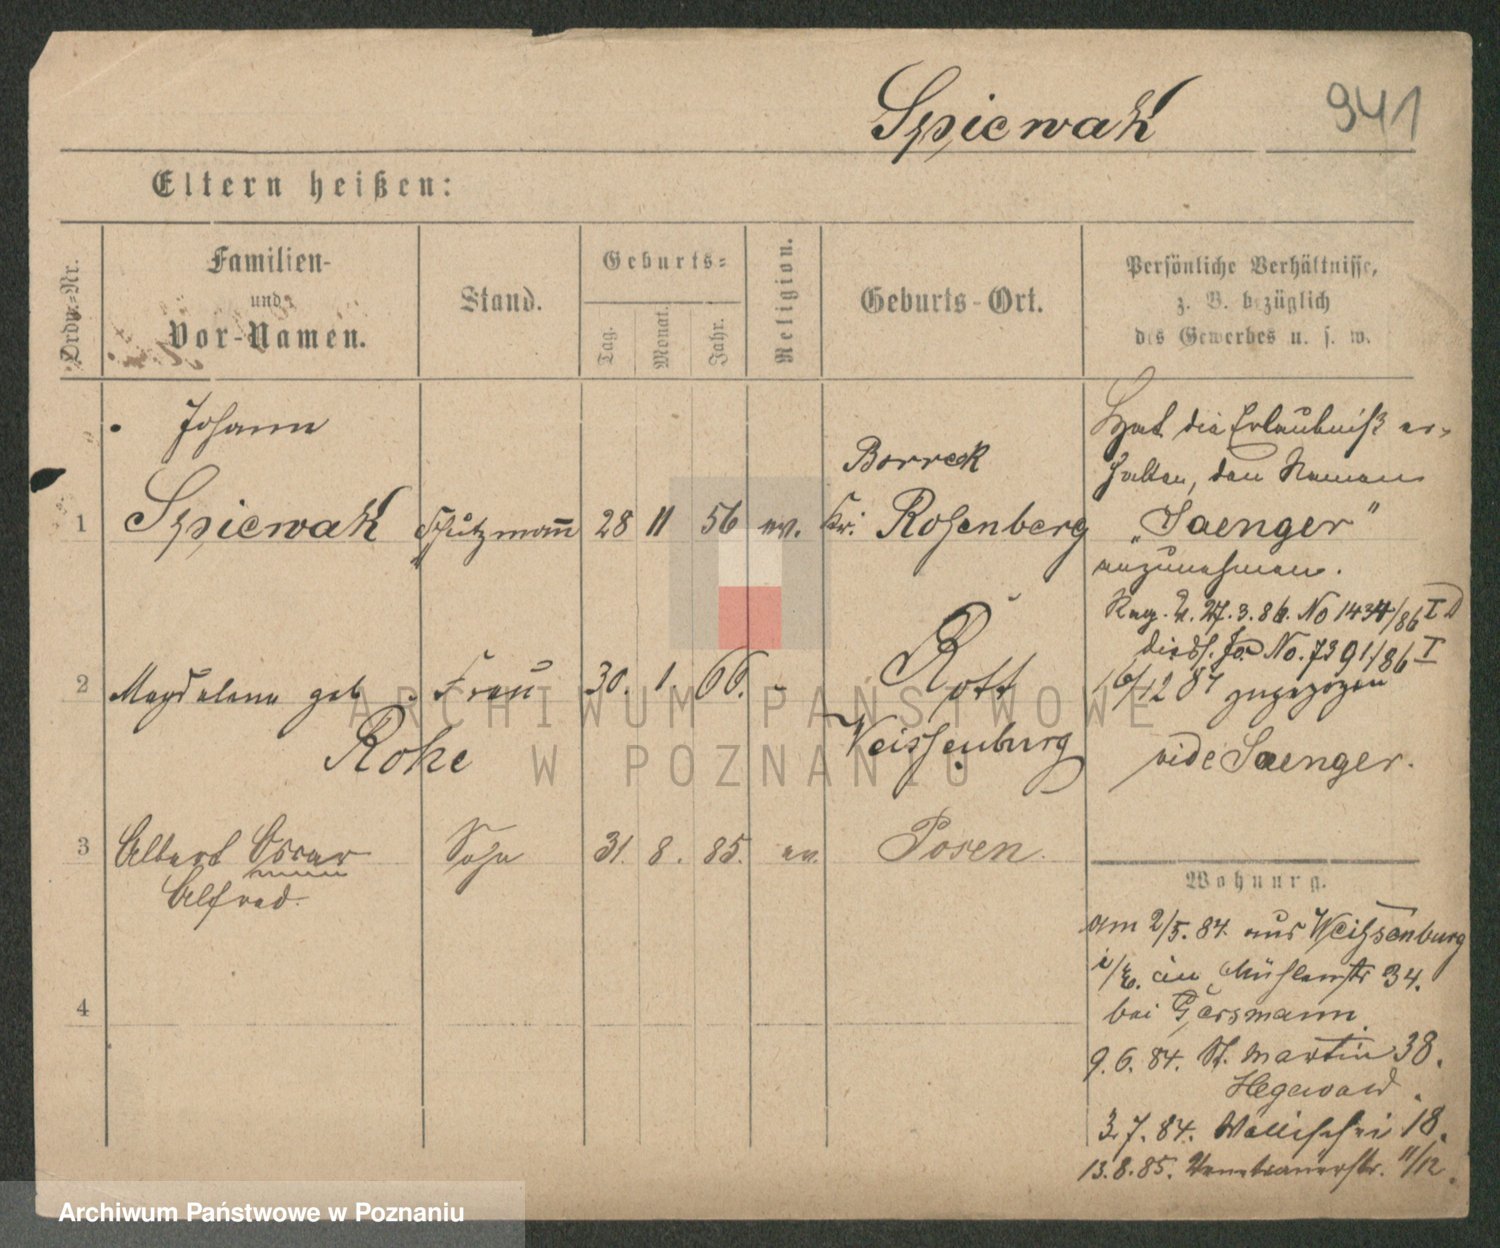 Spiewak 941
Eltern heißen:
Ordn.-Nr.
Familien-
und
Vor-Namen.
Stand.
Geburts-
Tag.
Monat.
Jahr.
Religion.
Geburts-Ort.
Persönliche Verhältnisse,
z. B. bezüglich
des Gewerbes u. s. w.
Johann
1 Spiewak Schutzmann 28 11 56 ev.
Borreck
Kr. Rosenberg
Hat die Erlaubniß er-
halten, den Namen
„Saenger"
anzunehmen.
Reg. V. 27.3.86. No 1434/86 I D
No. 7391/86 I
16/12 87 zugezogen
vide Saenger.
2 Magdalena geb. Frau 30. 1. 66. - Rott
Rohe Weissenburg
3 Albert Oscar Sohn 31. 8. 85. ev. Posen.
Alfred.
4
Wohnung.
am 2/5. 84. aus Weißenburg
i/E. in Mühlenstr 34.
bei Gärsmann
9.6.84. St. Martin 38.
Hegewald.
3.7.84. Wallischei 18.
13.8.85. Venetianerstr. 11/12.
ARCHIWUM PAŃSTWOWE
W POZNANIU
Archiwum Państwowe w Poznaniu